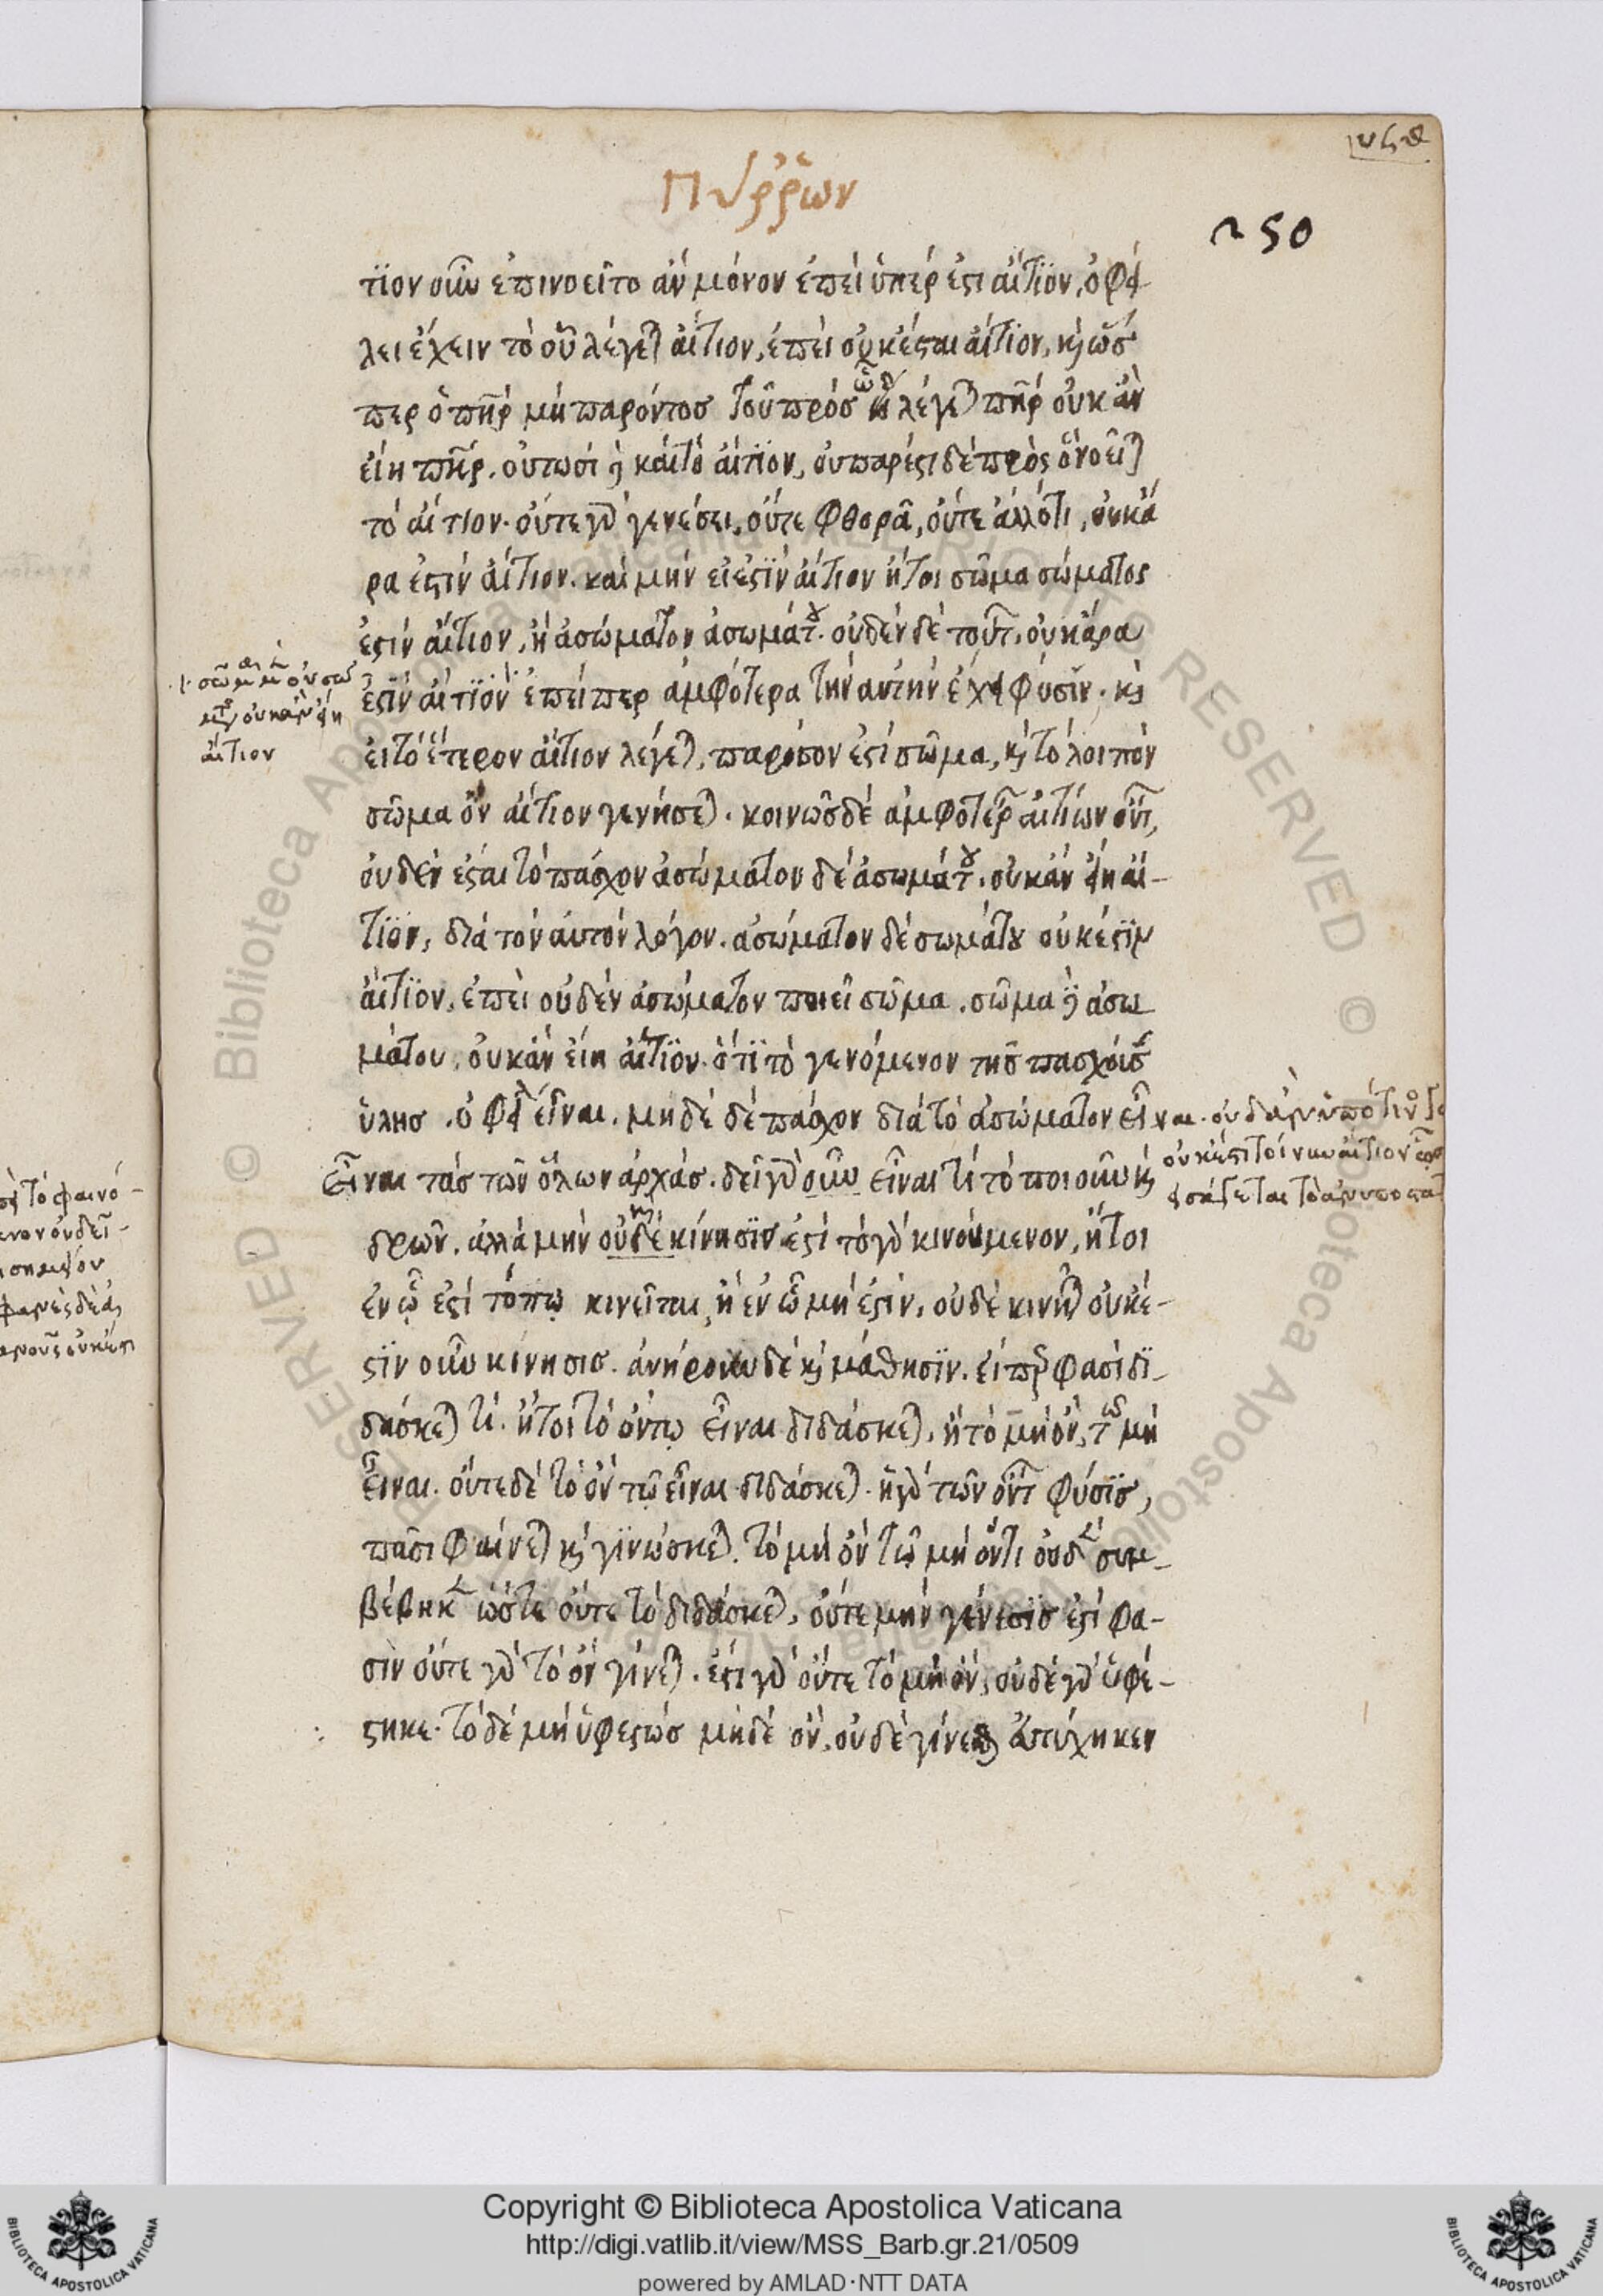 Πύῤῥων
250
τϊον οὖν ἐπινοεῖτο ἂν μόνον ἐπεὶ ὑπέρ ἐστι αἴτϊον, ὀφεί
λει ἔχειν τὸ οὗ λέγεται αἴτιον, ἐπεὶ οὐκ ἔσται αἴτϊον, καὶ ὥσ
περ ὁ πατὴρ μὴ παρόντοσ τοῦ πρὸσ ὃ λέγεται πατὴρ οὐκ ἂν
εἴη πατήρ. οὑτωσὶ δὲ καὶ τὸ αἴτϊον, οὐ πάρεστι δὲ πρὸς ὃ νοεῖται
τὸ αἴτιον. οὔτε γὰρ γενέσει, οὔτε φθορᾶ, οὔτε ἄλλο τι, οὐκ ἄ
ρα ἐστὶν αἴτιον. καὶ μὴν εἰ ἐστϊν αἴτιον ἤτοι σῶμα σώματος
ἐστὶν αἴτιον, ἢ ἀσώματον ἀσωμάτου. οὐδὲν δὲ τούτων, οὐκ ἄρα
ἐστϊν αἰτϊον. ἐπείπερ ἀμφότερα τὴν αὐτὴν ἔχει φύσϊν. καὶ
εἰ τὸ ἕτερον αἴτιον λέγεται, παρόσον ἐστὶ σῶμα, καὶ τὸ λοιπὸν
σῶμα ὂν αἴτιον γενήσεται. κοινῶσ δὲ ἀμφοτέρων αἰτίων ὄντων,
οὐδὲν ἔσται τὸ πάσχον ἀσώματον δὲ ἀσωμάτου. οὐκ ἂν εἴη αἴ-
τϊον, διὰ τὸν αὐτὸν λόγον. ἀσώματον δὲ σωμάτου οὐκ ἔστϊν
αἴτϊον, ἐπεὶ οὐδὲν ἀσώματον ποιεῖ σῶμα. σῶμα δὲ ἀσω
μάτου, οὐκ ἂν εἴη αἴτϊον. ὅτϊ τὸ γενόμενον τῆσ πασχούσησ
ὕλησ. ὀφείλει εἶναι. μηδὲ δὲ πάσχον διὰ τὸ ἀσώματον εἶ
εἶναι τὰσ τῶν ὅλων ἀρχάσ. δεῖ γὰρ οὖν εἶναι τί τὸ ποιοῦν καὶ
δρῶν. ἀλλὰ μὴν οὐδὲ κίνησϊσ ἐστὶ τὸ γὰρ κινούμενον, ἤτοι
ἐν ᾧ ἐστὶ τόπῳ κινεῖται, ἢ ἐν ᾧ μή ἐστιν, οὐδὲ κινεῖται οὐκ ἔ-
στϊν οὖν κίνησισ. ἀνήρουν δὲ καὶ μάθησϊν. εἴπερ φασὶ δϊ-
δάσκεται τί. ἤτοι τὸ ὂν τῷ εἶναι διδάσκεται, ἢ τὸ μὴ ὄν, τῷ μὴ
εἶναι. οὔτε δὲ τὸ ὂν τῷ εἶναι διδάσκεται. ἡ γὰρ τῶν ὄντων φύσϊσ,
πᾶσι φαίνεται καὶ γϊνώσκεται. τὸ μὴ ὂν τῷ μὴ ὄντι οὐδὲν συμ-
βέβηκεν ὥστε οὔτε τὸ διδάσκεται, οὔτε μὴν γένεσϊσ ἐστὶ φα-
σὶν οὔτε γὰρ τὸ ὂν γίνεται. ἔστι γὰρ οὔτε τὸ μὴ ὄν, οὐδὲ γὰρ ὑφέ-
στηκε. τὸ δὲ μὴ ὑφεστὼσ μηδὲ ὄν, οὐδὲ γίνεσθαι ἀτετύχηκεν
αἴτιον
ναι. οὐδὲν ὑπό τινος
οὐκ ἔστι τοίνυν αἴτιον
Copyright © Biblioteca Apostolica Vaticana
http://digi.vatlib.it/view/MSS_Barb.gr.21/0509
powered by AMLAD·NTT DATA